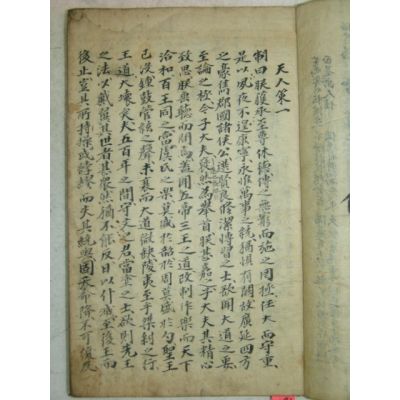 天人策一
制曰朕獲承至尊休德傳之無窮而施之罔極任大而守重
是以夙夜不遑康寧永惟萬事之統猶惧有闕故廣延四方
之豪雋郡國諸侯公選賢良修潔博習之士欲聞大道之要
至論之極今子大夫褎然為舉首朕甚嘉之子大夫其精心
致思朕垂聽而問焉蓋聞五帝三王之道改制作樂而天下
洽和百王同之當虞氏之樂莫盛於韶於周莫盛於勺聖王
已沒鍾鼓管絃之聲未衰而大道微缺陵夷至乎桀紂之行
王道大壞矣夫五百年之間守文之君當塗之士欲則先王
之法以戴翼其世者甚衆然猶不能反日以仆滅至後王而
後止豈其所持操或悖繆而失其統與固天命降不可復反